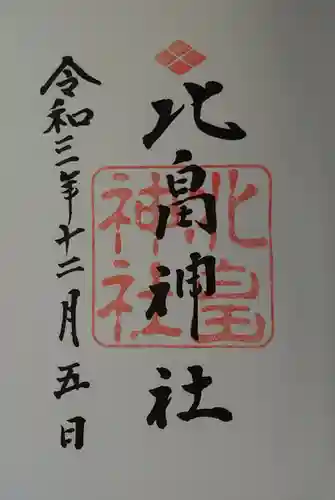 北畠神社
令和三年十二月五日
北畠
神社